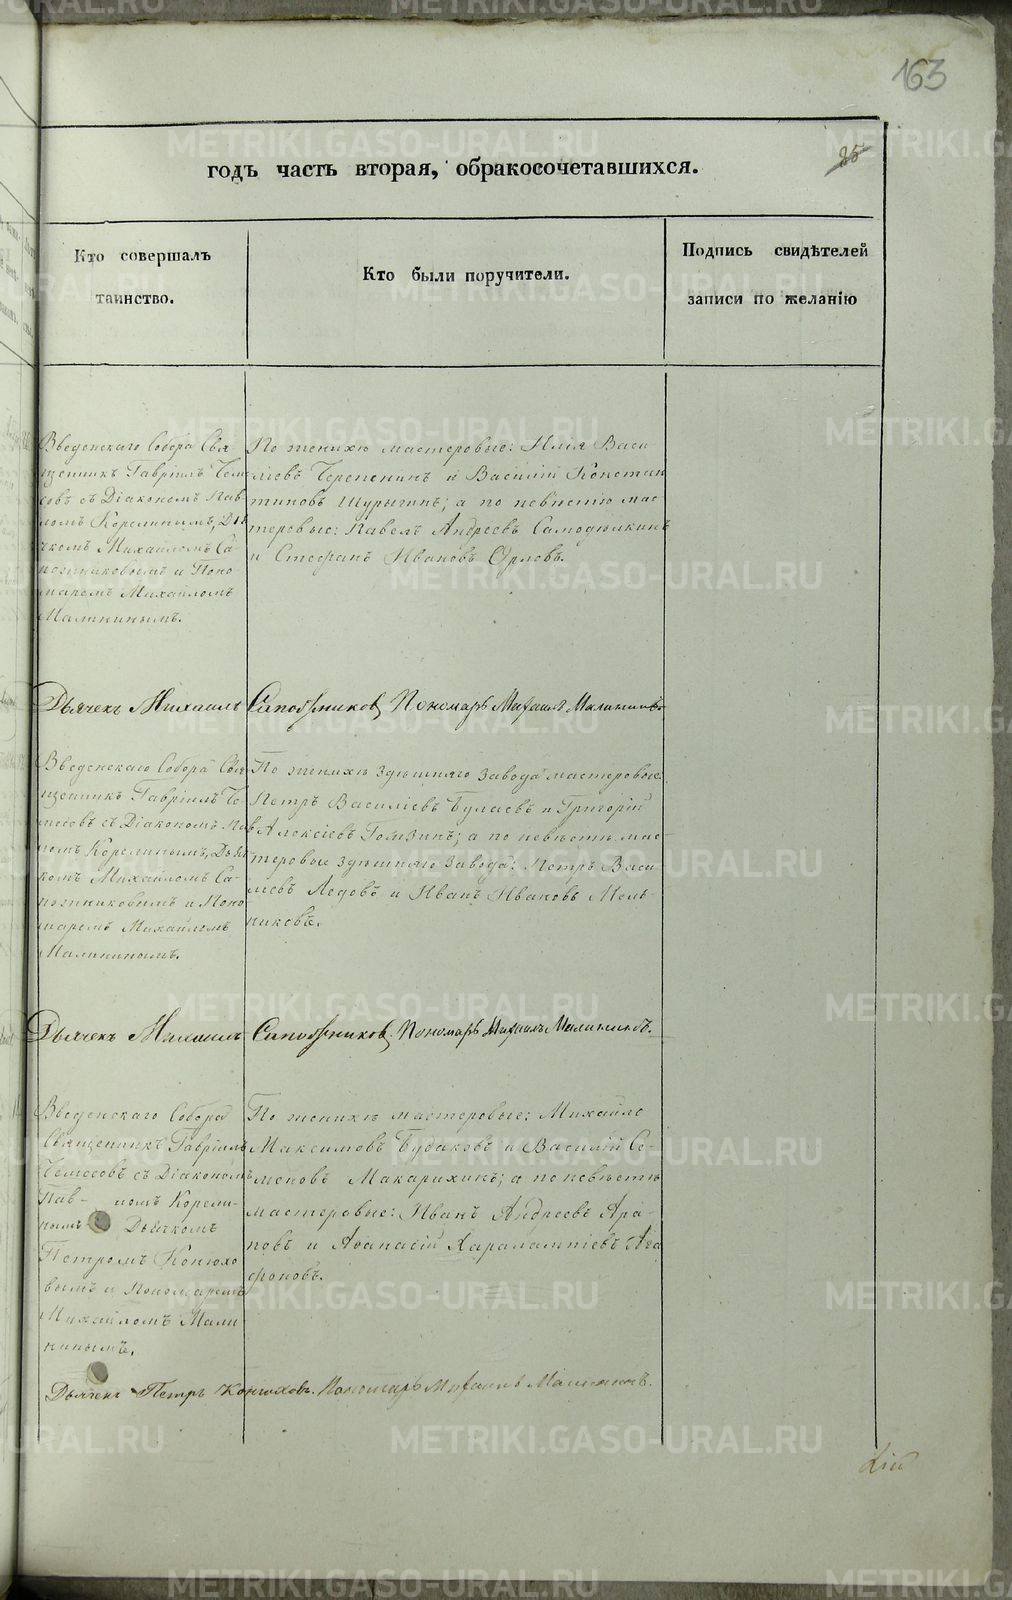 163
25
годъ часть вторая, обракосочетавшихся.
Кто совершалъ
таинство.
Кто были поручители.
Подпись свидѣтелей
записи по желанію
Введенскаго Собора Свя
щенникъ Гавріилъ Чем
совъ съ Діакономъ Пав
ломъ Корелинымъ, Дья
чкомъ Михайломъ Са
пожниковымъ и Поно
маремъ Михайломъ
Малининымъ.
По женихѣ мастеровые: Илія Васи
ліевъ Черепенинъ и Василій Констан
тиновъ Шурыгинъ; а по невѣстѣ мас
теровые: Павелъ Андреевъ Самодюлкинъ
и Стефанъ Ивановъ Орловъ.
Дьячекъ Михаилъ Сапожниковъ Пономарь Михаилъ Малининъ
Введенскаго Собора Свя
щенникъ Гавріилъ Че
месовъ съ Діакономъ Пав
ломъ Корелинымъ, Дьяч
комъ Михайломъ Са-
пожниковымъ и Поно
маремъ Михайломъ
Малининымъ.
По женихѣ здѣшняго завода мастеровые:
Петръ Василіевъ Булаевъ и Григорій
Алексіевъ Гомзинъ; а по невѣстѣ мас
теровые здѣшняго завода: Петръ Васи
ліевъ Ледовъ и Иванъ Ивановъ Мель
никовъ.
Дьячекъ Михаилъ Сапожниковъ. Пономарь Михаилъ Малининъ.
Введенскаго Собора
Священникъ Гавріилъ
Чемесовъ съ Діакономъ
Пав- ломъ Корели-
нымъ Дьячкомъ
Петромъ Конюхо
вымъ и Пономаремъ
Михайломъ Мали
нинымъ.
По женихѣ мастеровые: Михайло
Максимовъ Бубаковъ и Василій Се-
меновъ Макарихинъ; а по невѣстѣ
мастеровые: Иванъ Андреевъ Ара-
повъ и Аѳанасій Харалампіевъ Ага
фоновъ.
Дьячекъ Петръ Конюховъ. Пономарь Михаилъ Малининъ.
METRIKI.GASO-URAL.RU